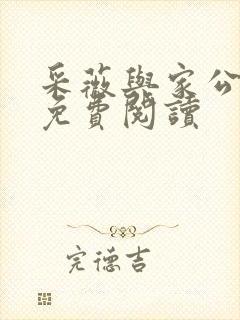 采薇與家公
免費閱讀
完德吉